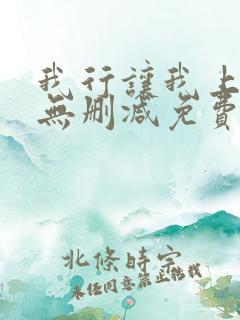 我行讓我上
無刪減免費
北條時宗
未經同意禁止轉載